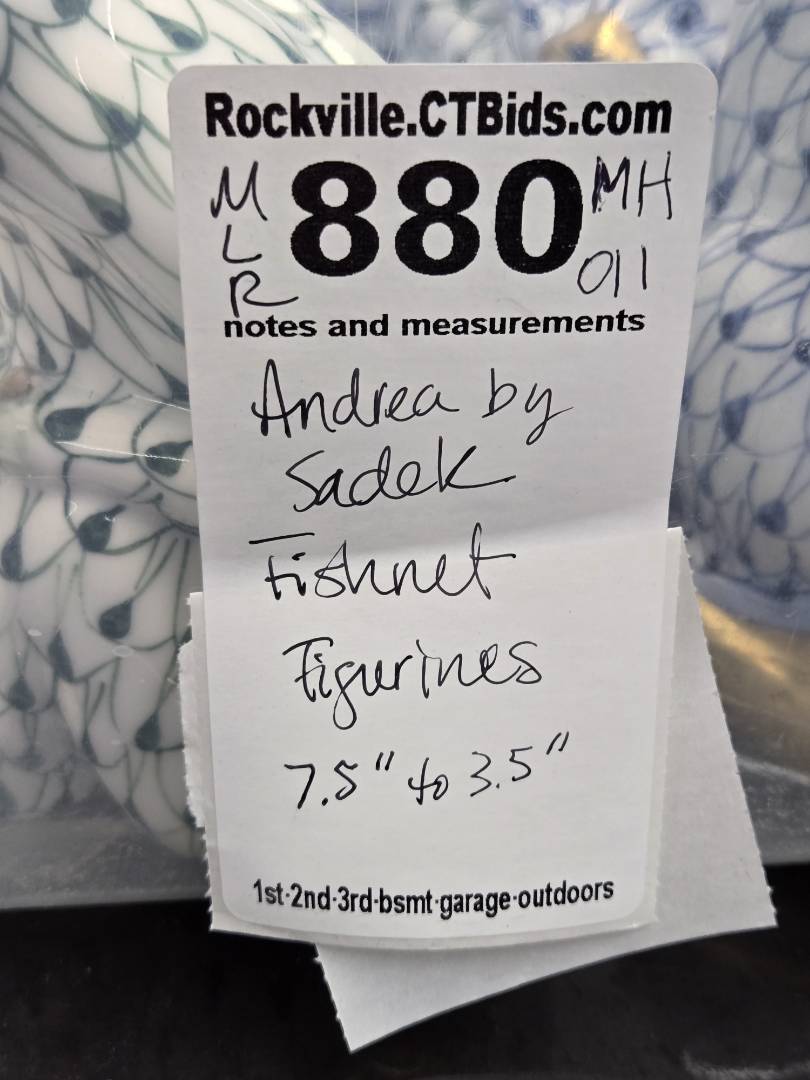 Rockville.CTBids.com
M
L
R
880
MH
011
notes and measurements
Andrea by
Sadek
Fishnet
Figurines
7.5" to 3.5"
1st·2nd·3rd·bsmt·garage·outdoors